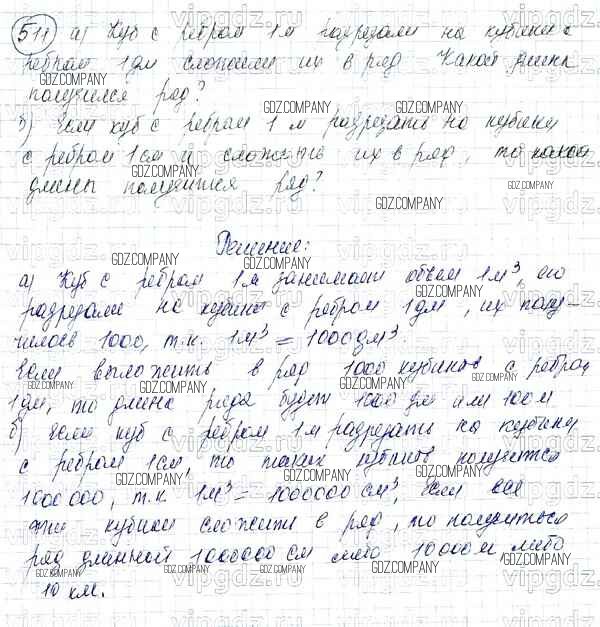 511 а) Куб с ребром 1м разрезали на кубики с
ребром 1дм сложили их в ряд Какой длины
получился ряд?
б) Если куб с ребром 1 м разрезать на кубики
с ребром 1см и сложить их в ряд, то какой
длины получится ряд?
Решение:
а) Куб с ребром 1м занимает объем 1м³, его
разрезали на кубики с ребром 1дм, их полу-
чилось 1000, т.к. 1м³ = 1000дм³.
Если выложить в ряд 1000 кубиков с ребром
1дм, то длина ряда будет 1000 дм или 100м
б) Если куб с ребром 1м разрезать на кубики
с ребром 1см, то таких кубиков получится
1000000, т.к 1м³ = 1000000 см³, если все
эти кубики сложить в ряд, то получиться
ряд длинной 1000000 см либо 10000м, либо
10 км.